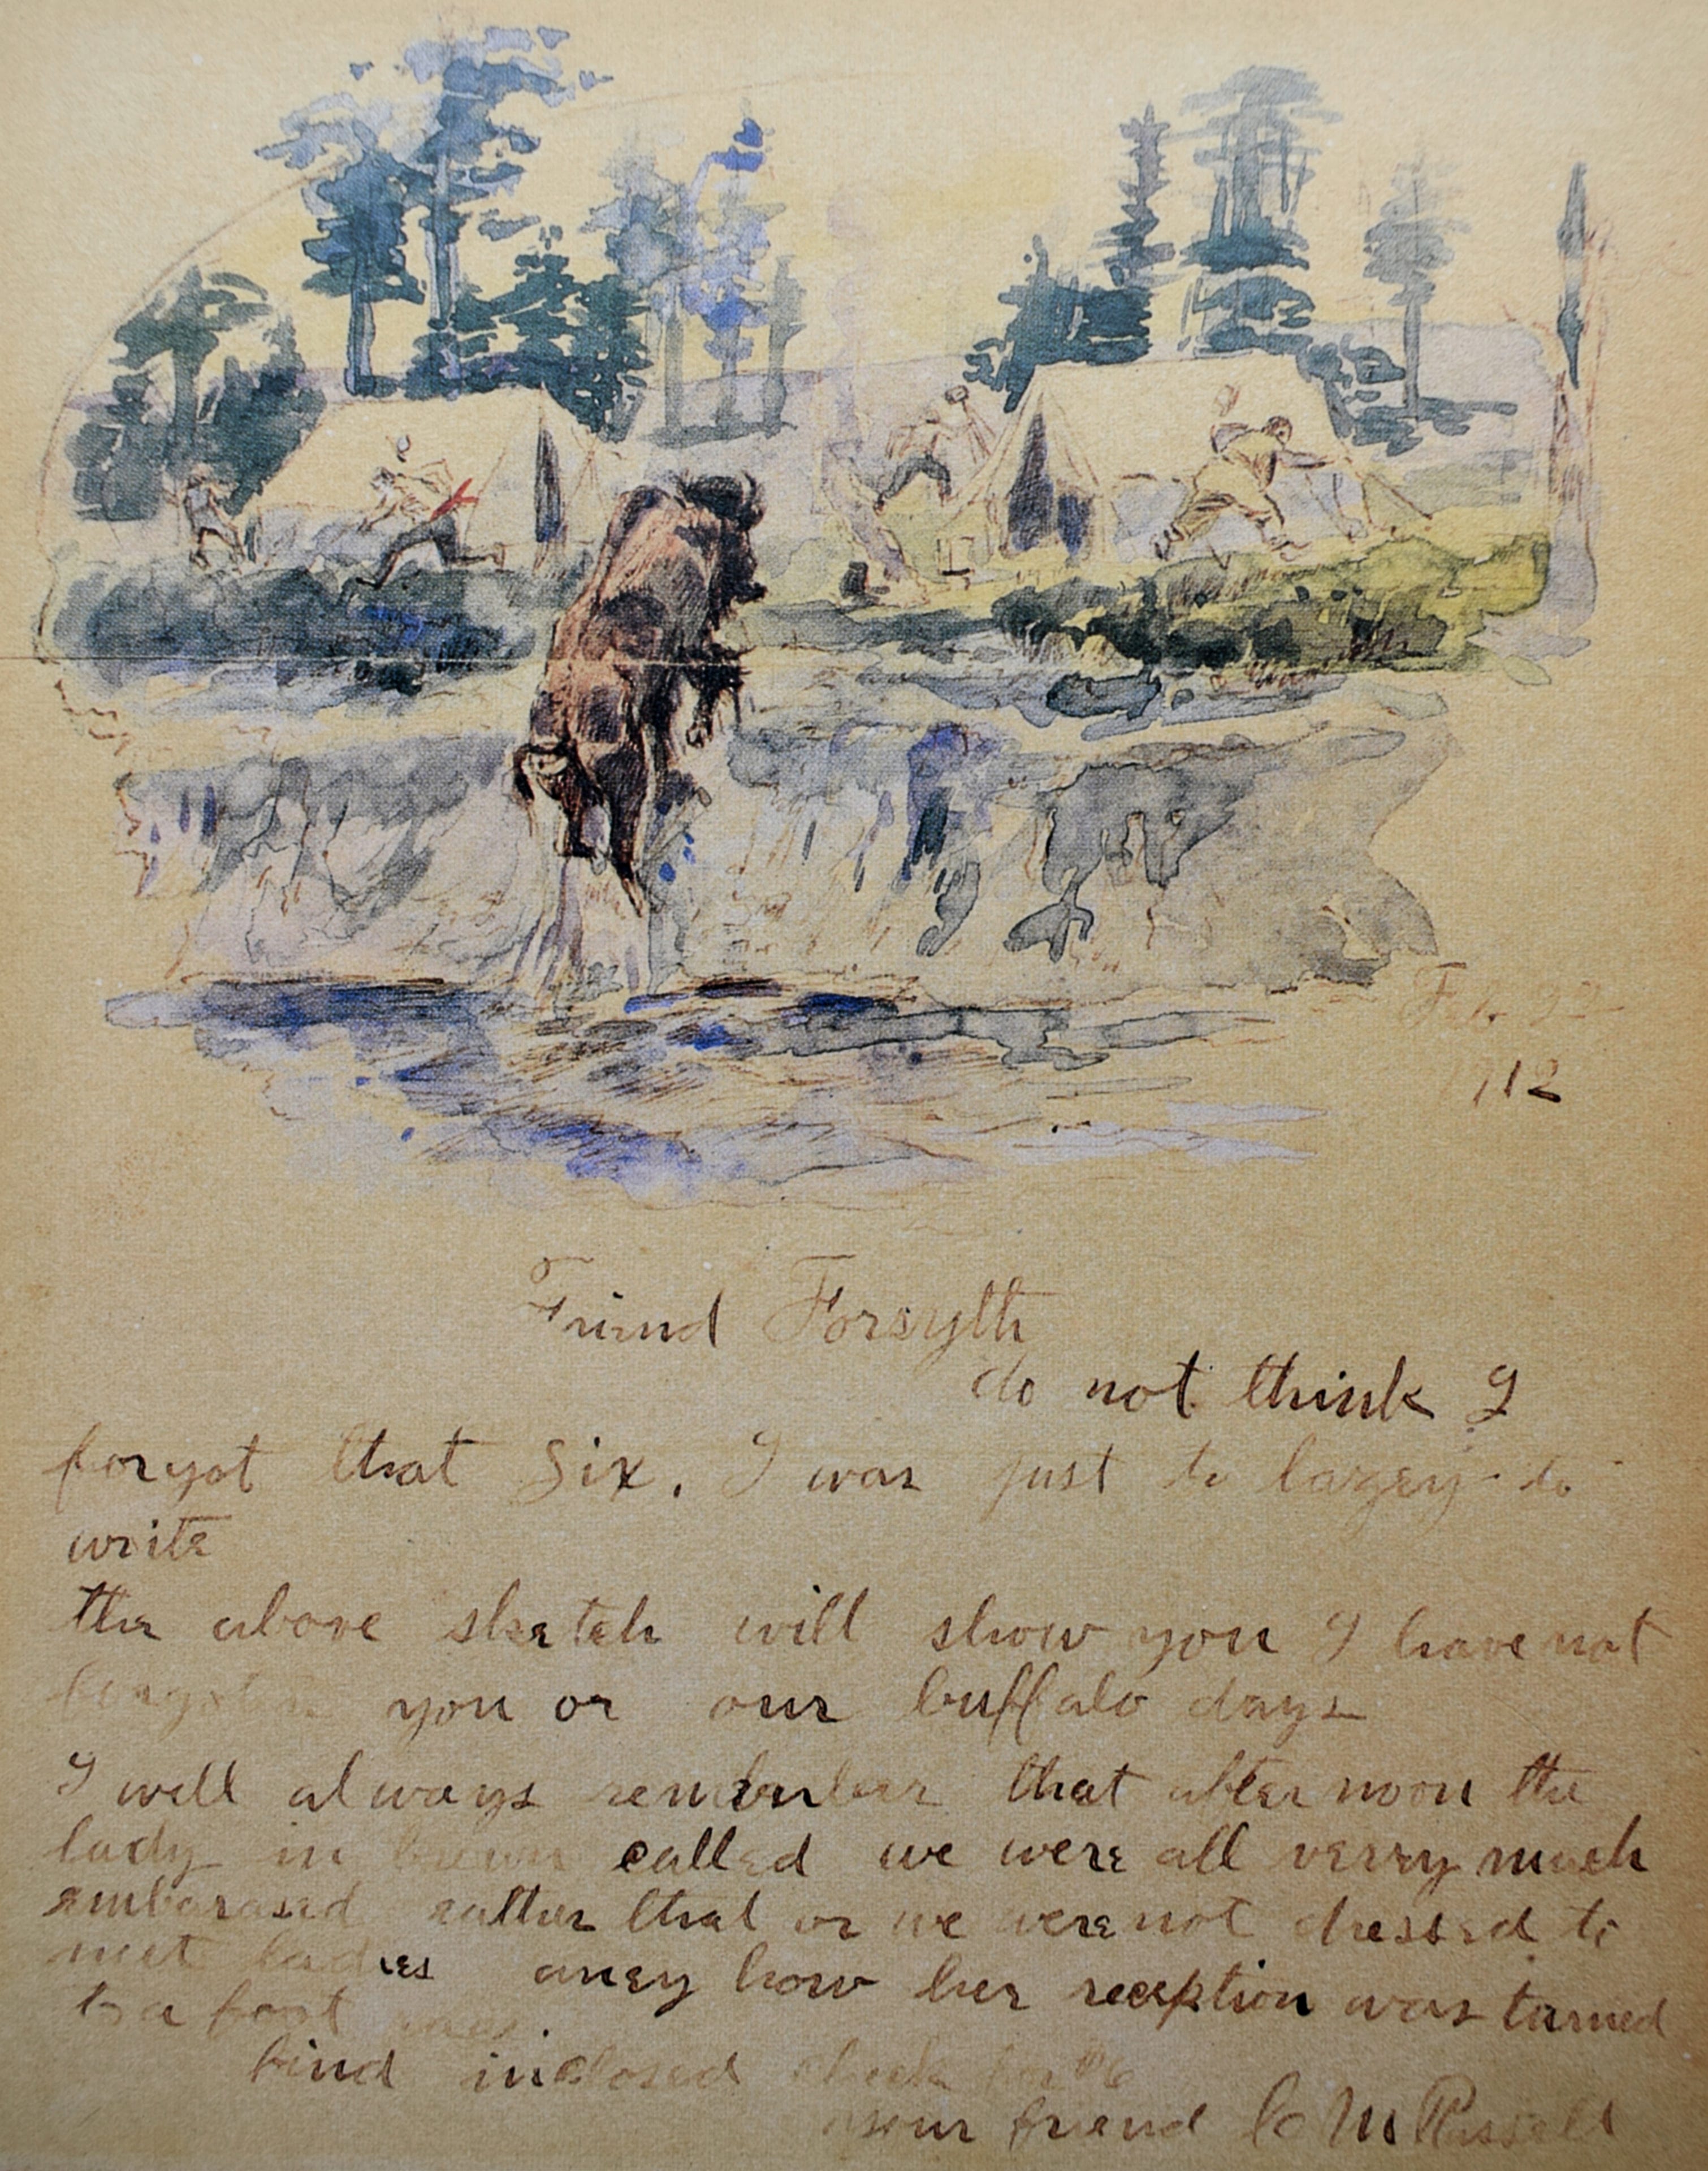 Feb 22
1912
Friend Forsyth
do not think I
forgot that Six. I was just to lazey to
write
the above sketch will show you I have not
forgotten you or our buffalo days
I will always remember that after noon the
lady in brown called we were all verry much
embarased rather that or we were not dressed to
meet ladies aney how her reception was turned
to a foot
find inclosed check for $6
your friend C M Russell